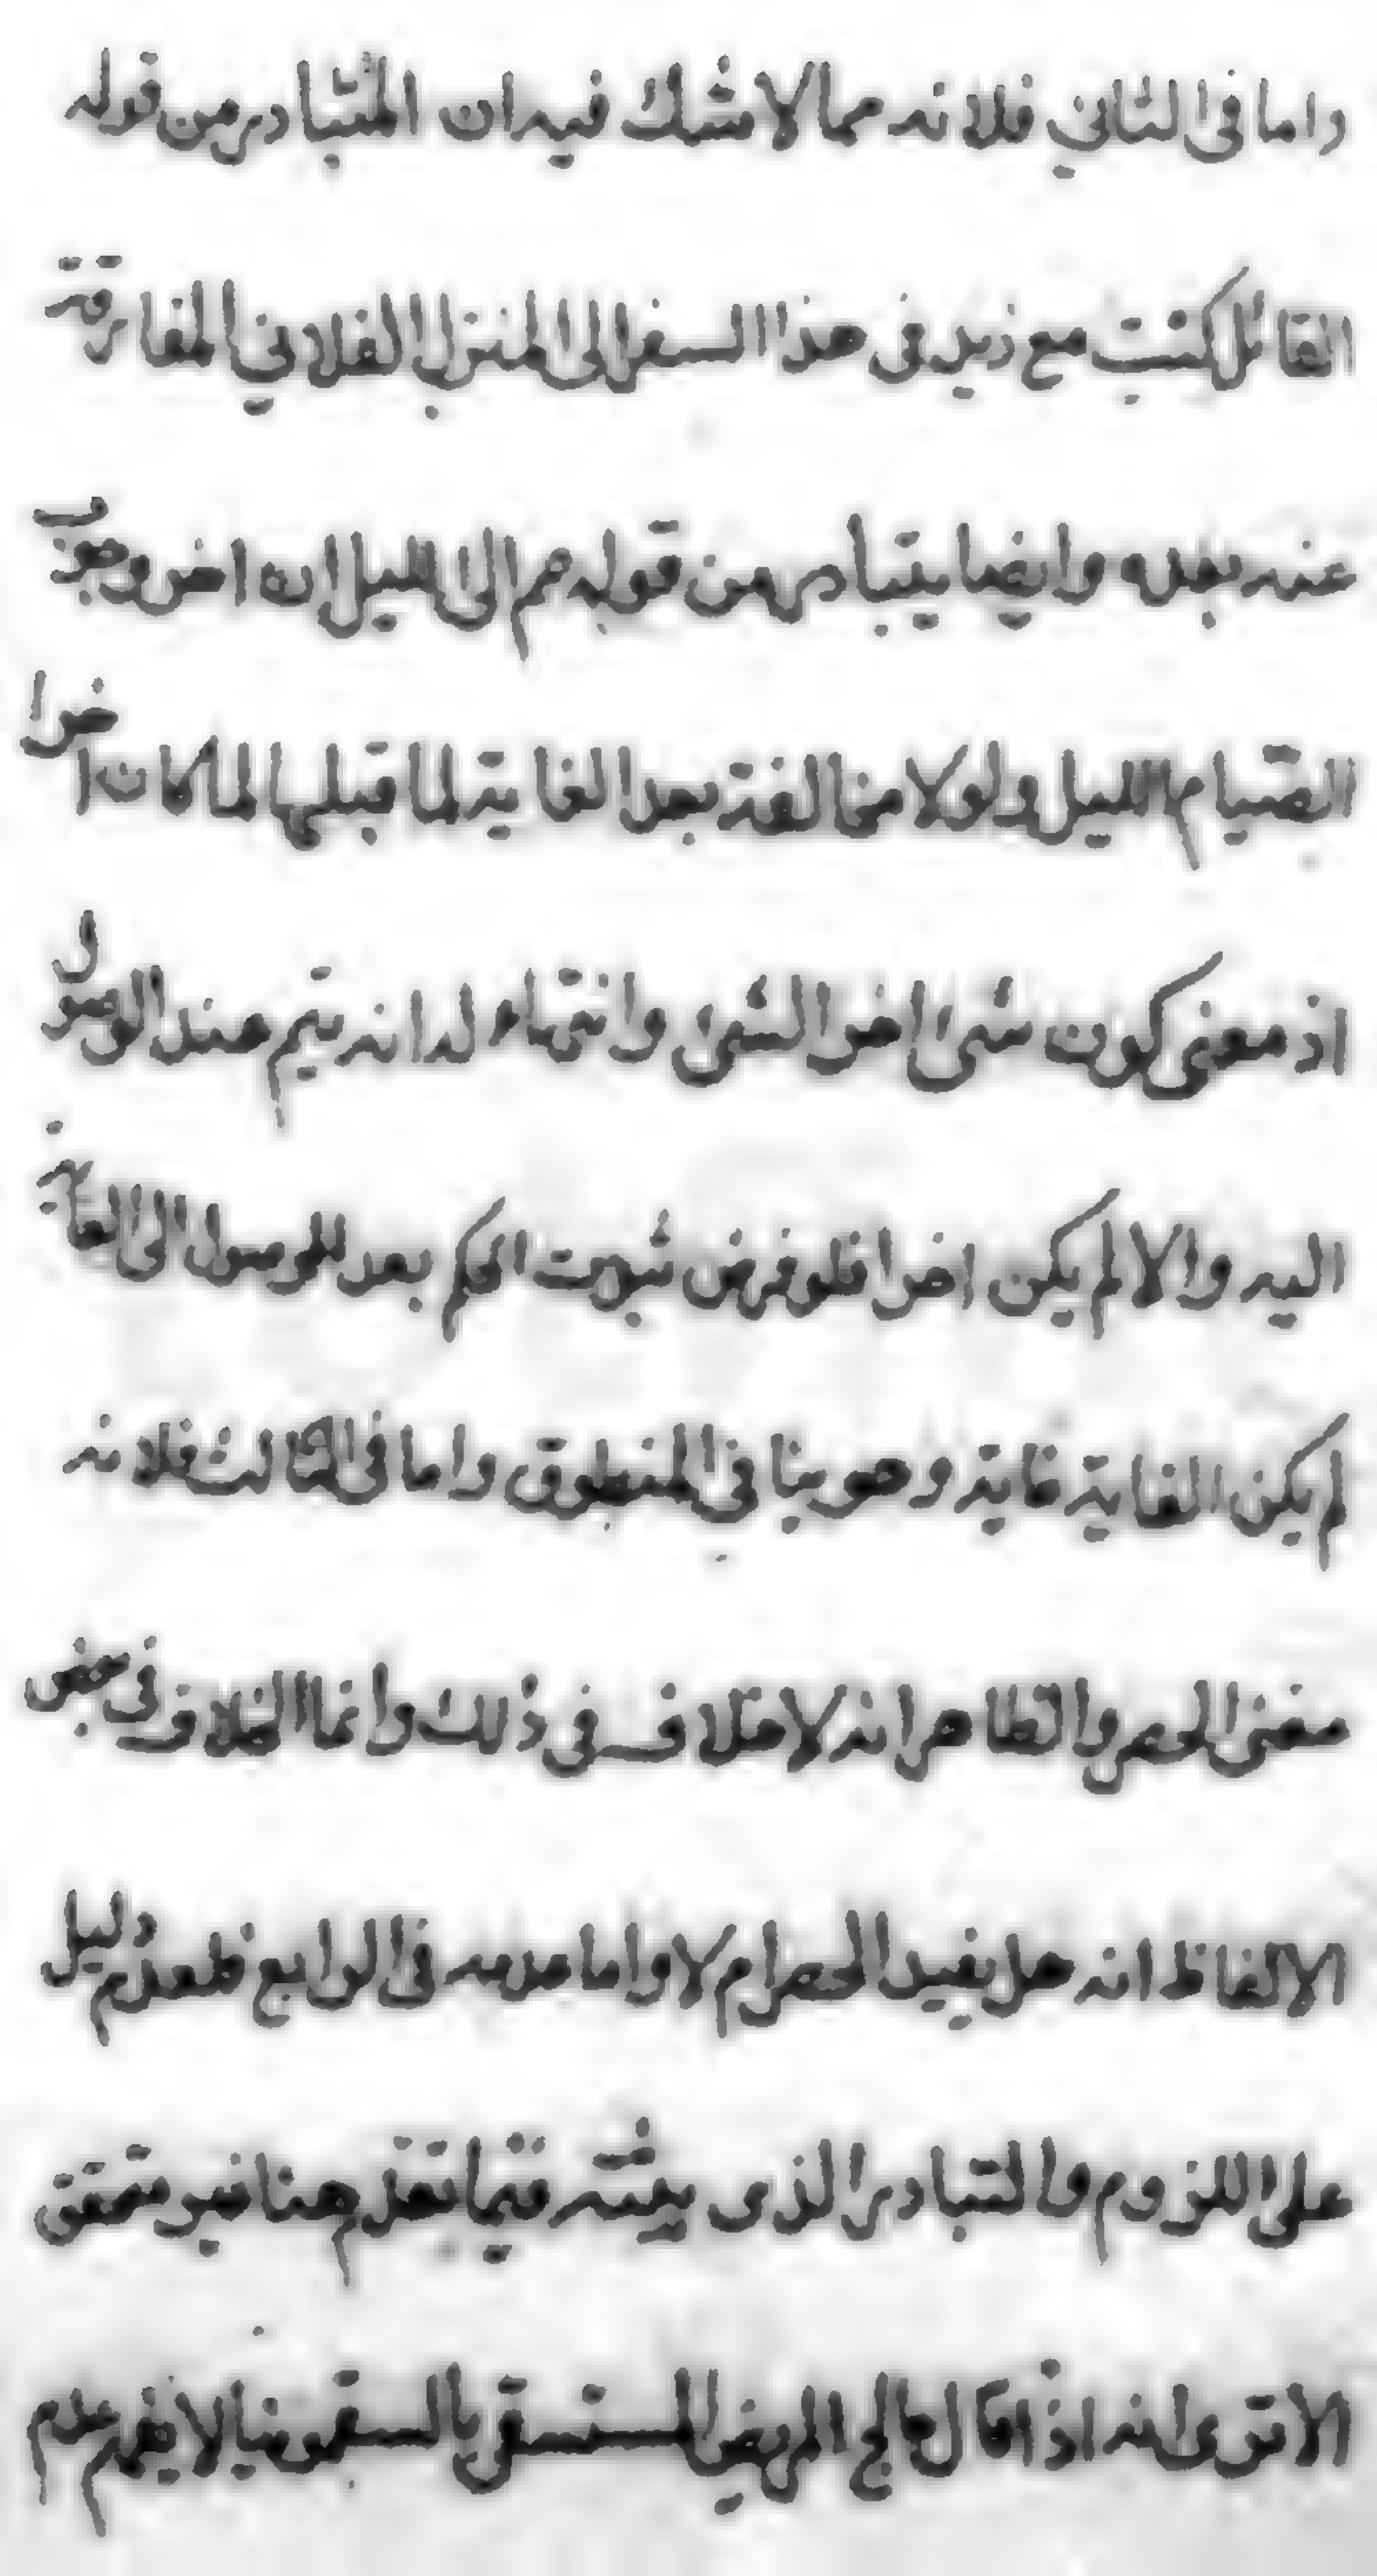 واما فى الثاني فلانه مما لا شك فيه ان المتبادر من قوله
القائل كنت مع زيد فى هذا السفر الى المنزل الفلاني المفارقة
عنه بعده وايضا يتبادر من قوله صم الى الليل ان اخر وجوب
الصيام الليل ولولا مخالفة بعد الغاية لما قبلها لما كان اخرا
اذ معنى كون شئ اخر الشئ وانتهاء له انه يتم عند الوصول
اليه والا لم يكن اخرا فلو فرض ثبوت الحكم بعد الوصول الى الغاية
لم يكن الغاية غاية وهو ينافي المنطوق واما فى الثالث فلانه
معنى الحصر والظاهر انه لا خلاف فى ذلك وانما الخلاف فى بعض
الالفاظ انه هل يفيد الحصر ام لا واما عدمه فى الرابع فلعدم دليل
على اللزوم والتبادر الذى يثبته فيما تقدم هنا غير متحقق
الا ترى انه اذا قال عالج المريض المستسقى بالسقمونيا لا يفهم عدم